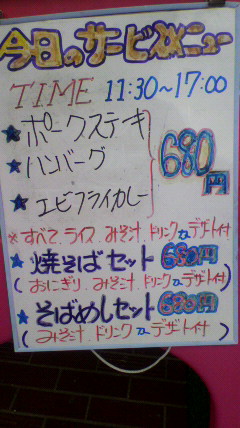 今日のサービスメニュー
TIME 11:30~17:00
★ポークステーキ
★ハンバーグ
★エビフライカレー
680円
※すべて、ライス、みそ汁、ドリンク又はデザート付
★焼そばセット 680円
(おにぎり、みそ汁、ドリンク又はデザート付)
★そばめしセット 680円
(みそ汁、ドリンク又はデザート付)